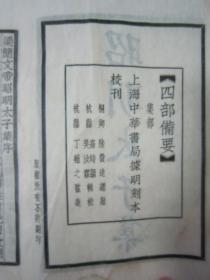 【四部備要】
集部
上海中華書局據明刻本
校刊
桐鄉 陸費逵總勘
杭縣 高時顯輯校
杭縣 吳汝霖輯校
杭縣 丁輔之監造
版權所有不許翻印
梁簡文帝昭明太子集序